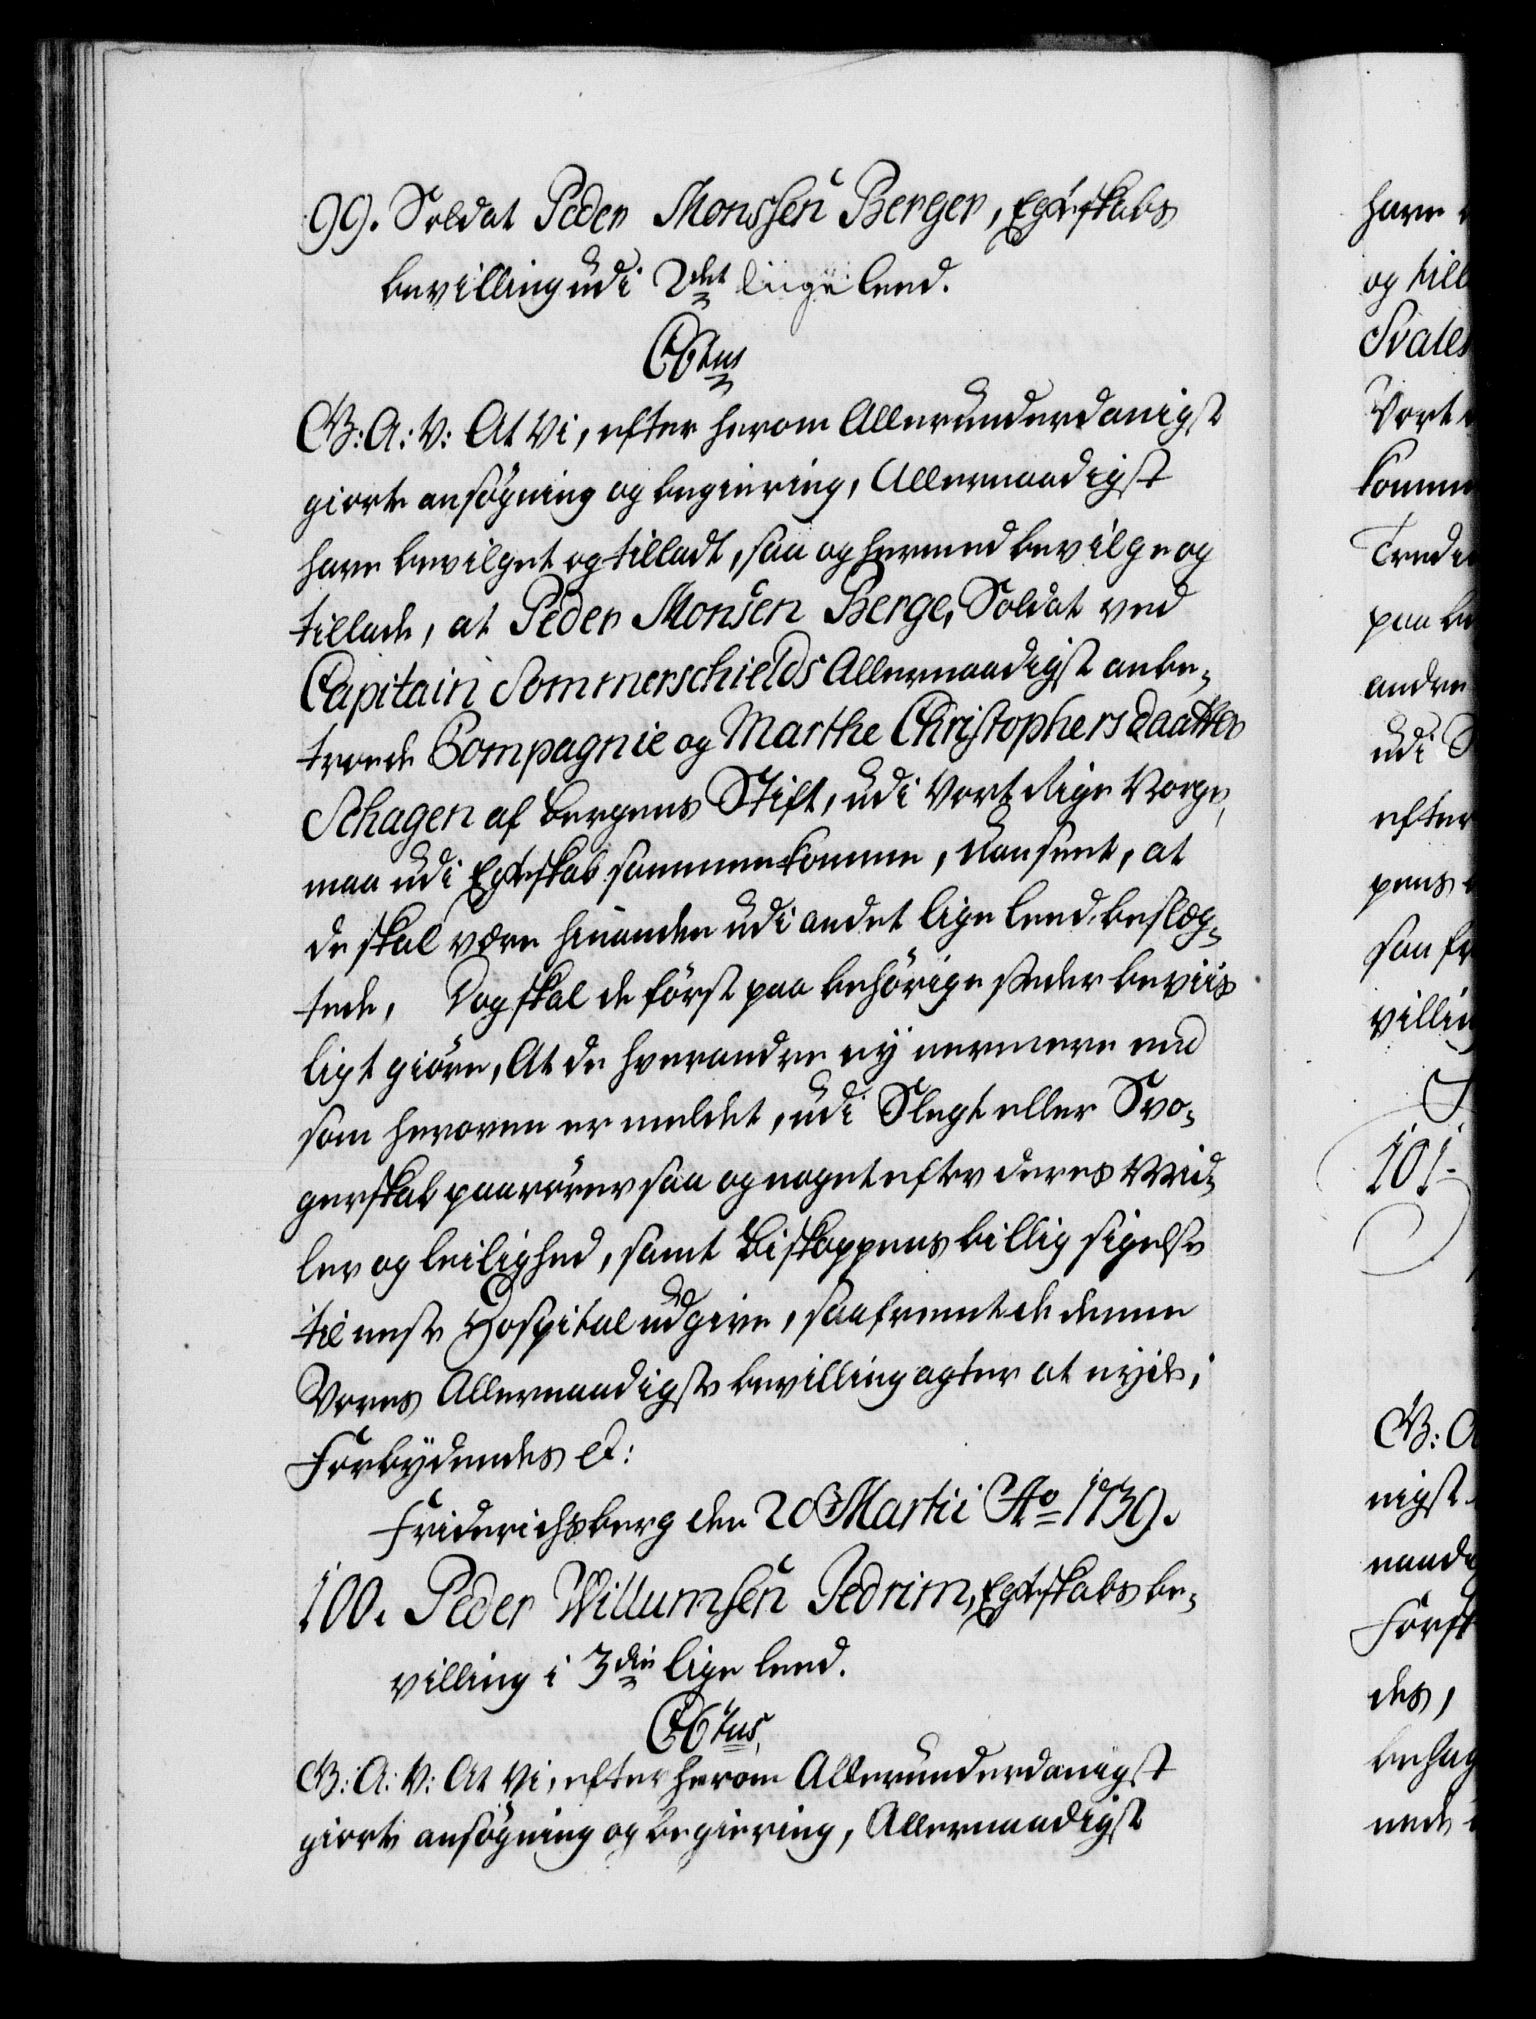 99. Soldat Peder Monssen Berger, Egteskabs
bevilling udi 2det liige leed.
C6tus
G: A: V: At Vi, efter herom Allerunderdanigst
giorte ansøgning og begiering, Allernaadigst
have bevilget og tilladt, saa og hermed bevilge og
tillade, at Peder Monsen Berge, Soldat ved
Capitain Sommerschields Allernaadigst anbe-
troede Compagnie og Marthe Christophersdaatter
Schagen af Bergens Stift, udi Vort Rige Norge,
maa udi Egteskab sammenkomme, Uanseet, at
de skal være hinanden udi andet lige leed beslæg-
tede, Dog skal de først paa behörige steder beviis
ligt giøre, At de hverandre ey nermere end
som heroven er meldet, udi Slegt eller Svo-
gerskab paarører saa og noget efter deres Mid-
ler og leilighed, samt Biskoppens billig sigelse
til neste Hospital udgive, saafremt de denne
Vores Allernaadigste bevilling agter at nyde,
Forbydendes et:
Friderichsberg den 20 Martii Ao 1739.
100. Peder Willumsen Pedrim, Egteskabs be-
villing i 3die lige leed.
C6tus
G: A: V: At Vi, efter herom Allerunderdanigst
giorte ansøgning og begiering, Allernaadigst
have
og till
Svales
Vort
komme
Tredie
paa be
andre
udi S
efter
pens
saa fr
villin
101.
G: A
nigst
naadi
Først
des,
behag
nede